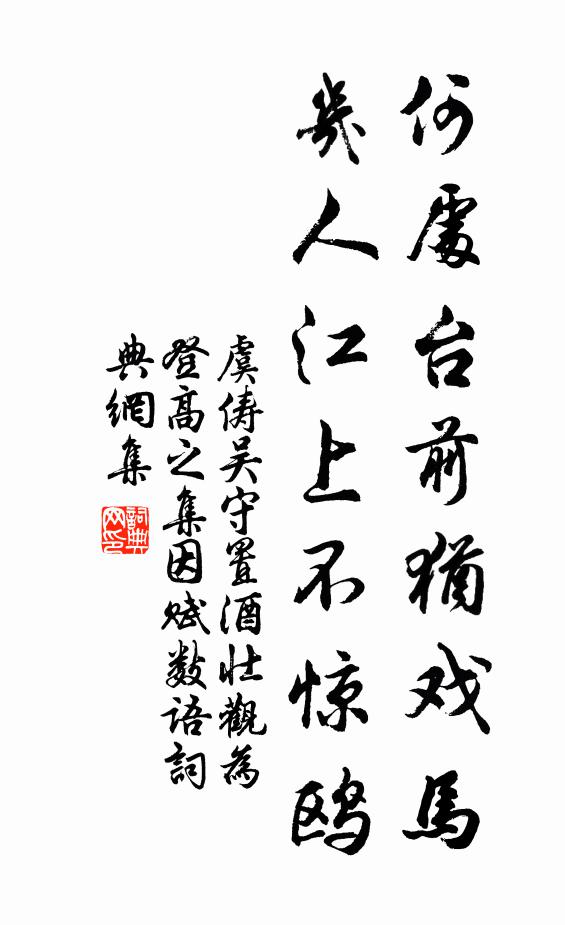 何處台前猶戏馬
幾人江上不惊鸥
虞俦吴守置酒壮觀為
登高之集因赋数语詞
典網集
詞典网印